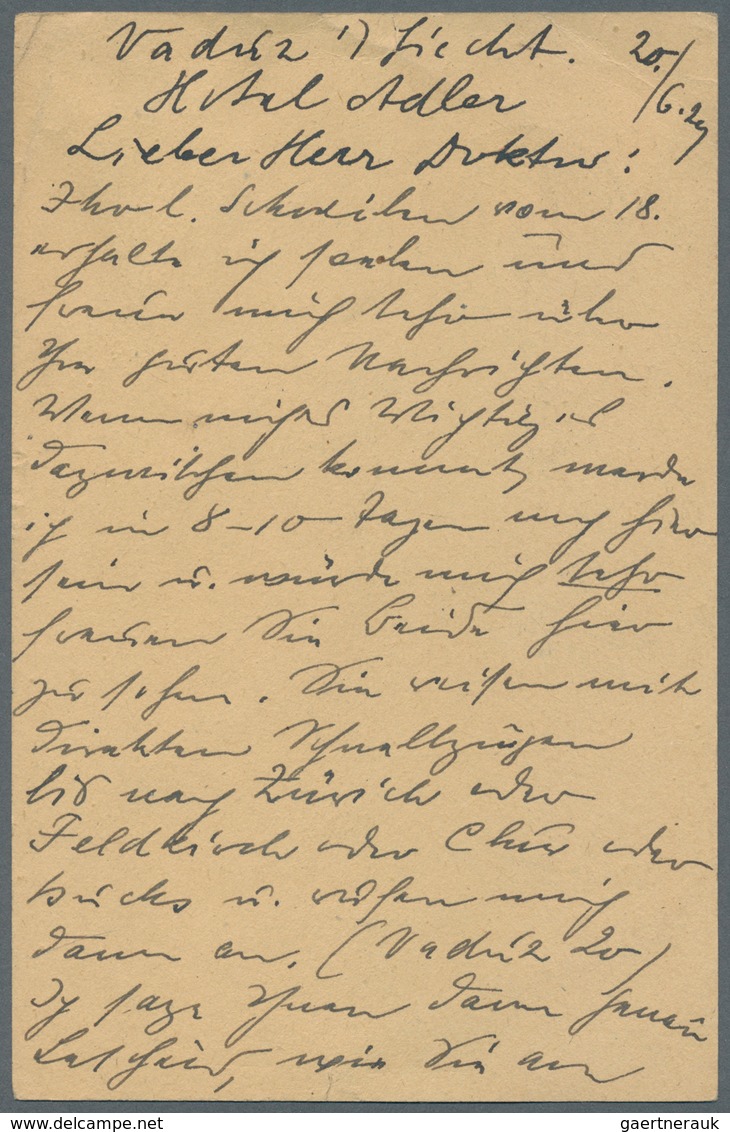 Vaduz i/ Liecht. 20./6.29
Hotel Adler
Lieber Herr Doktor!
Ihr l. Schreiben vom 18.
erhalte ich soeben und
freue mich sehr über
Ihre guten Nachrichten.
Wenn nichts Wichtiges
dazwischen kommt, werde
ich in 8–10 Tagen noch hier
sein u. würde mich sehr
freuen Sie beide hier
zu sehen. Sie reisen mit
direkten Schnellzügen
bis nach Zürich oder
Feldkirch oder Chur oder
Buchs u. rufen mich
dann an. (Vaduz 20)
Ich sage Ihnen dann genau
Bescheid, wie Sie am
gaertnerauk / delcampe.net